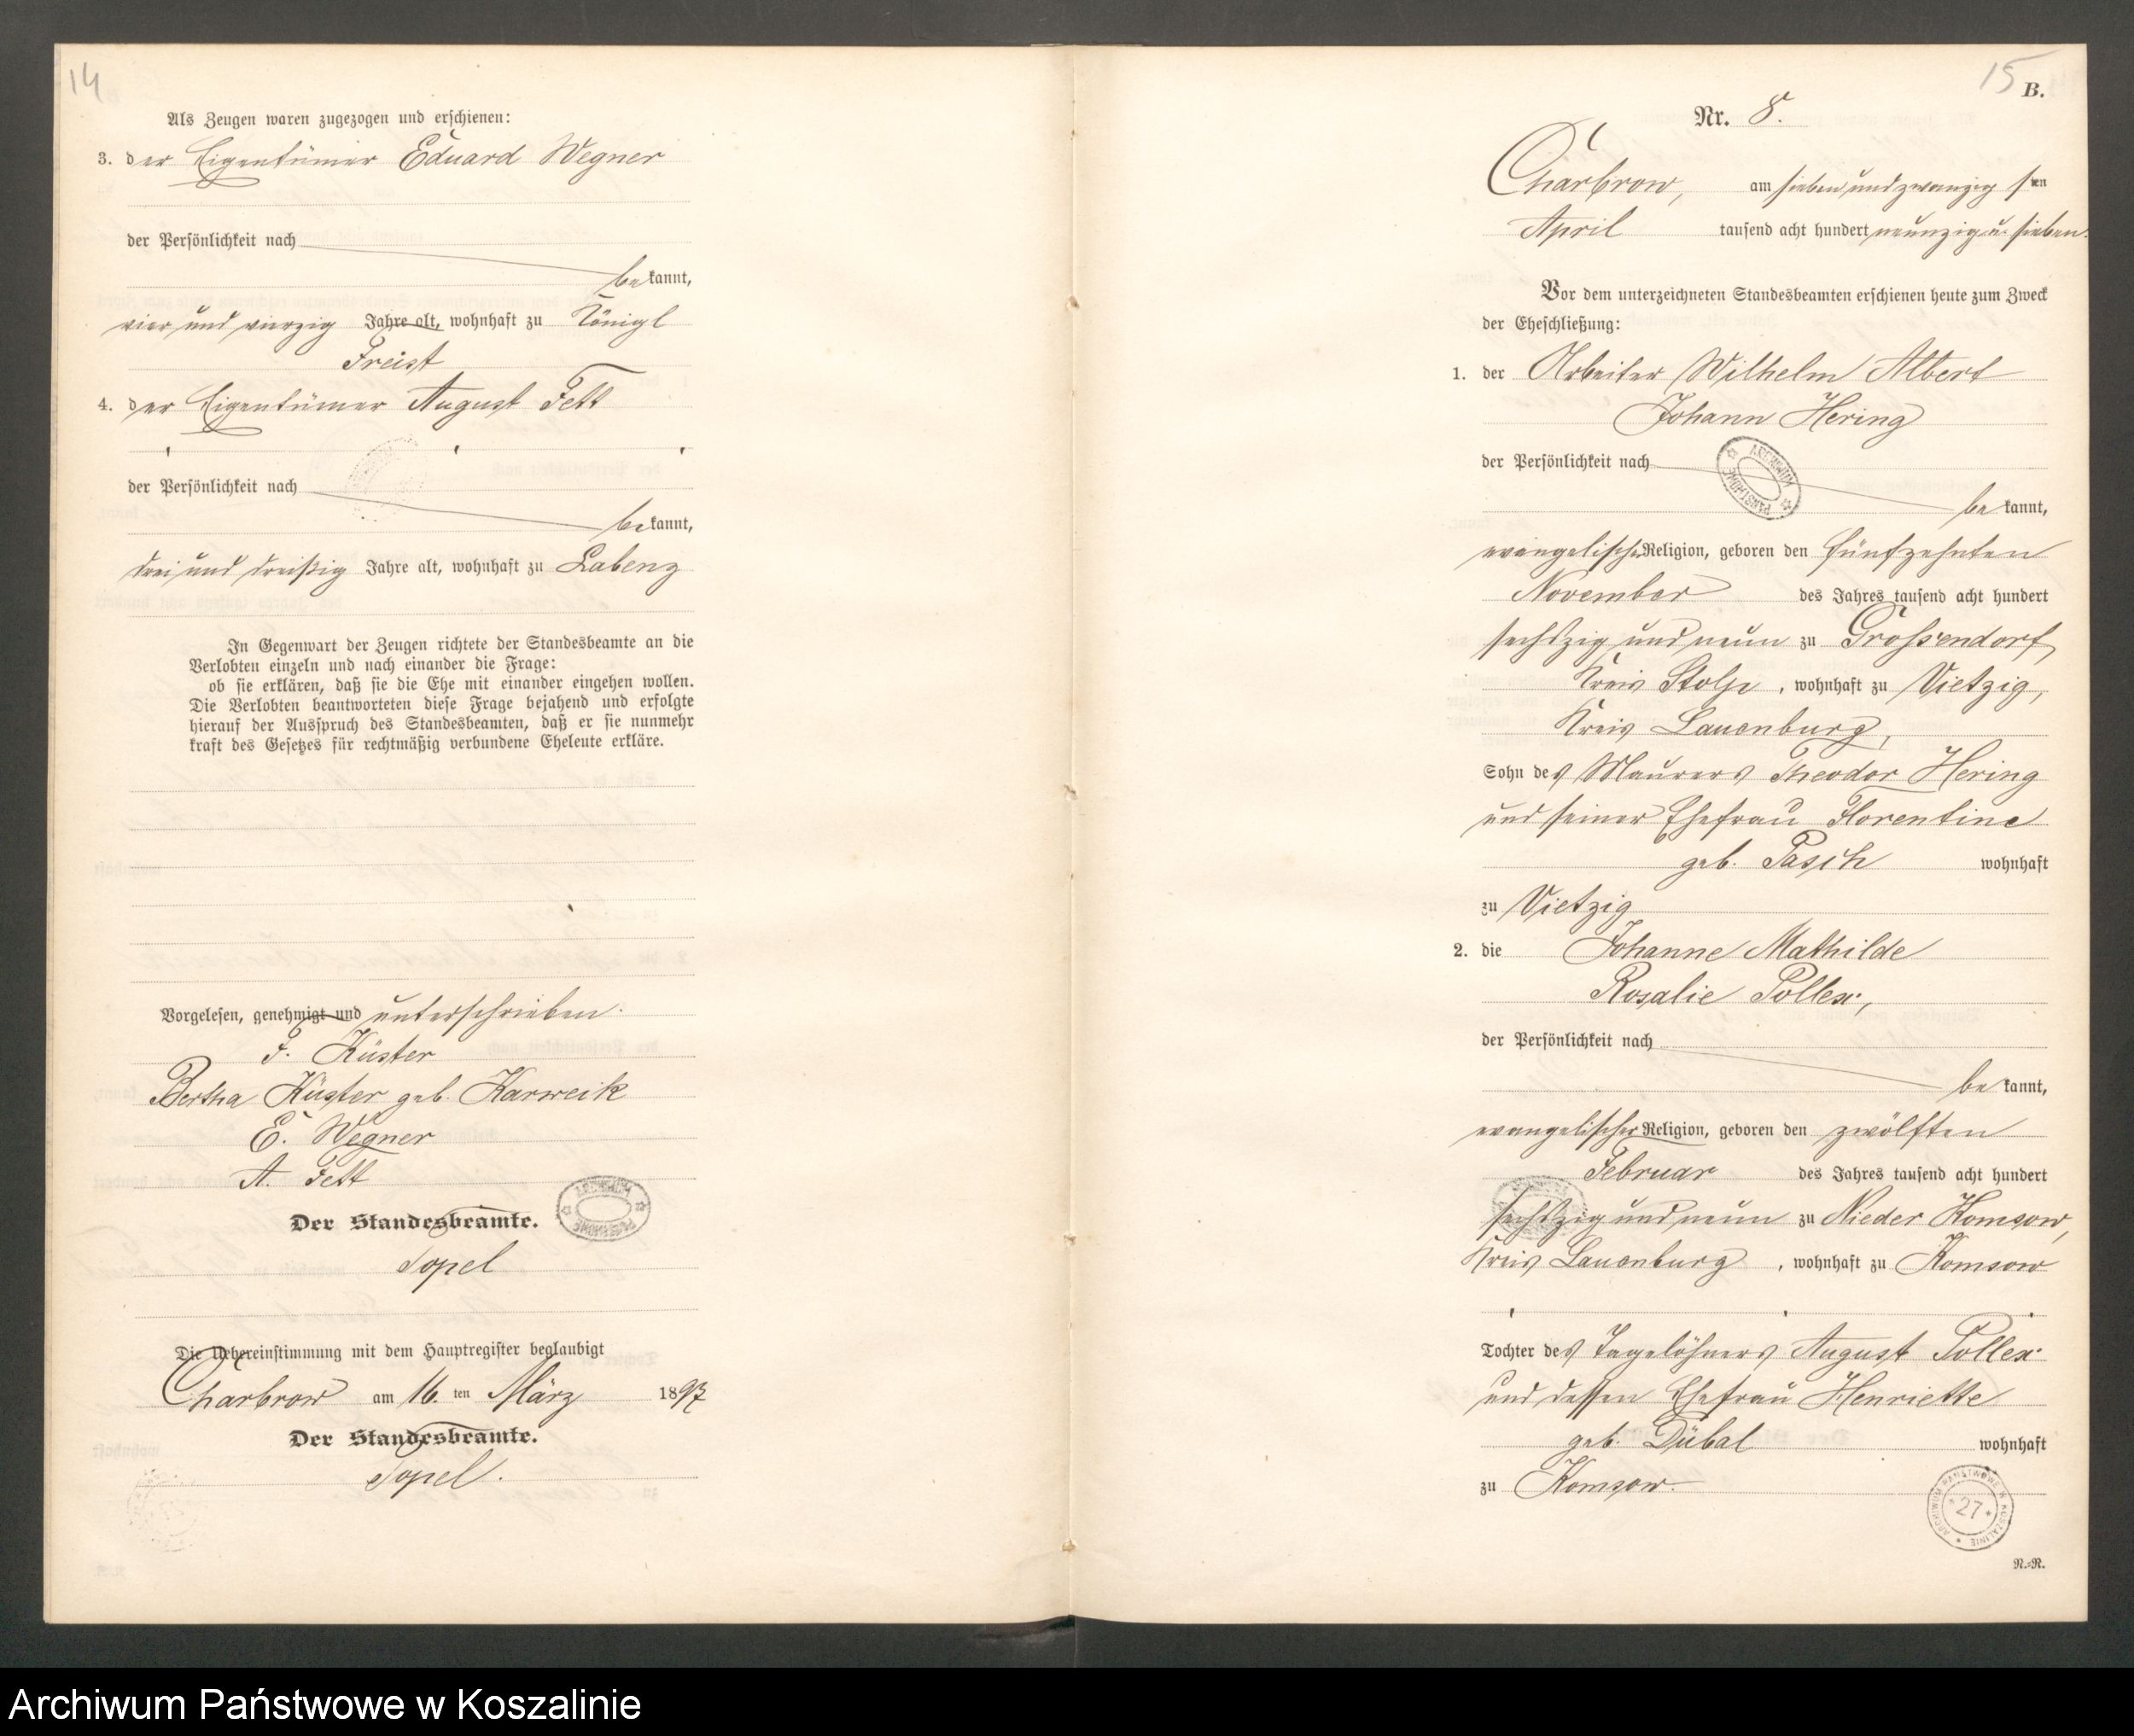 14
Als Zeugen waren zugezogen und erschienen:
3. der Eigentümer Eduard Wegner
der Persönlichkeit nach
bekannt,
vier und vierzig Jahre alt, wohnhaft zu Königl
Freist
4. der Eigentümer August Fett
der Persönlichkeit nach
bekannt,
drei und dreißig Jahre alt, wohnhaft zu Labenz
In Gegenwart der Zeugen richtete der Standesbeamte an die
Verlobten einzeln und nach einander die Frage:
ob sie erklären, daß sie die Ehe mit einander eingehen wollen.
Die Verlobten beantworteten diese Frage bejahend und erfolgte
hierauf der Ausspruch des Standesbeamten, daß er sie nunmehr
kraft des Gesetzes für rechtmäßig verbundene Eheleute erkläre.
Vorgelesen, genehmigt und unterschrieben.
F. Küster
Bertha Küster geb. Karweik
E. Wegner
A. Fett
Der Standesbeamte.
ARCHIWUM PAŃSTWOWE
Topel
Die Uebereinstimmung mit dem Hauptregister beglaubigt
Charbrow am 16. ten März 1897
Der Standesbeamte.
Topel.
15
B.
Nr. 8.
Charbrow, am sieben und zwanzigsten
April tausend acht hundert neunzig u. sieben.
Vor dem unterzeichneten Standesbeamten erschienen heute zum Zweck
der Eheschließung:
1. der Arbeiter Wilhelm Albert
Johann Hering
der Persönlichkeit nach
ARCHIWUM PAŃSTWOWE
bekannt,
evangelischer Religion, geboren den fünfzehnten
November des Jahres tausend acht hundert
sechszig und neun zu Grossendorf,
Kreis Stolp, wohnhaft zu Vietzig,
Kreis Lauenburg,
Sohn des Maurers Theodor Hering
und seiner Ehefrau Florentine
geb. Pasch wohnhaft
zu Vietzig
2. die Johanne Mathilde
Rosalie Pollex,
der Persönlichkeit nach
bekannt,
evangelischer Religion, geboren den zwölften
Februar des Jahres tausend acht hundert
sechszig und neun zu Nieder Komsow,
Kreis Lauenburg, wohnhaft zu Komsow
Tochter des Tagelöhners August Pollex
und dessen Ehefrau Henriette
geb. Dübal wohnhaft
zu Komsow.
ARCHIWUM PAŃSTWOWE W KOSZALINIE
27
N.=N.
Archiwum Państwowe w Koszalinie